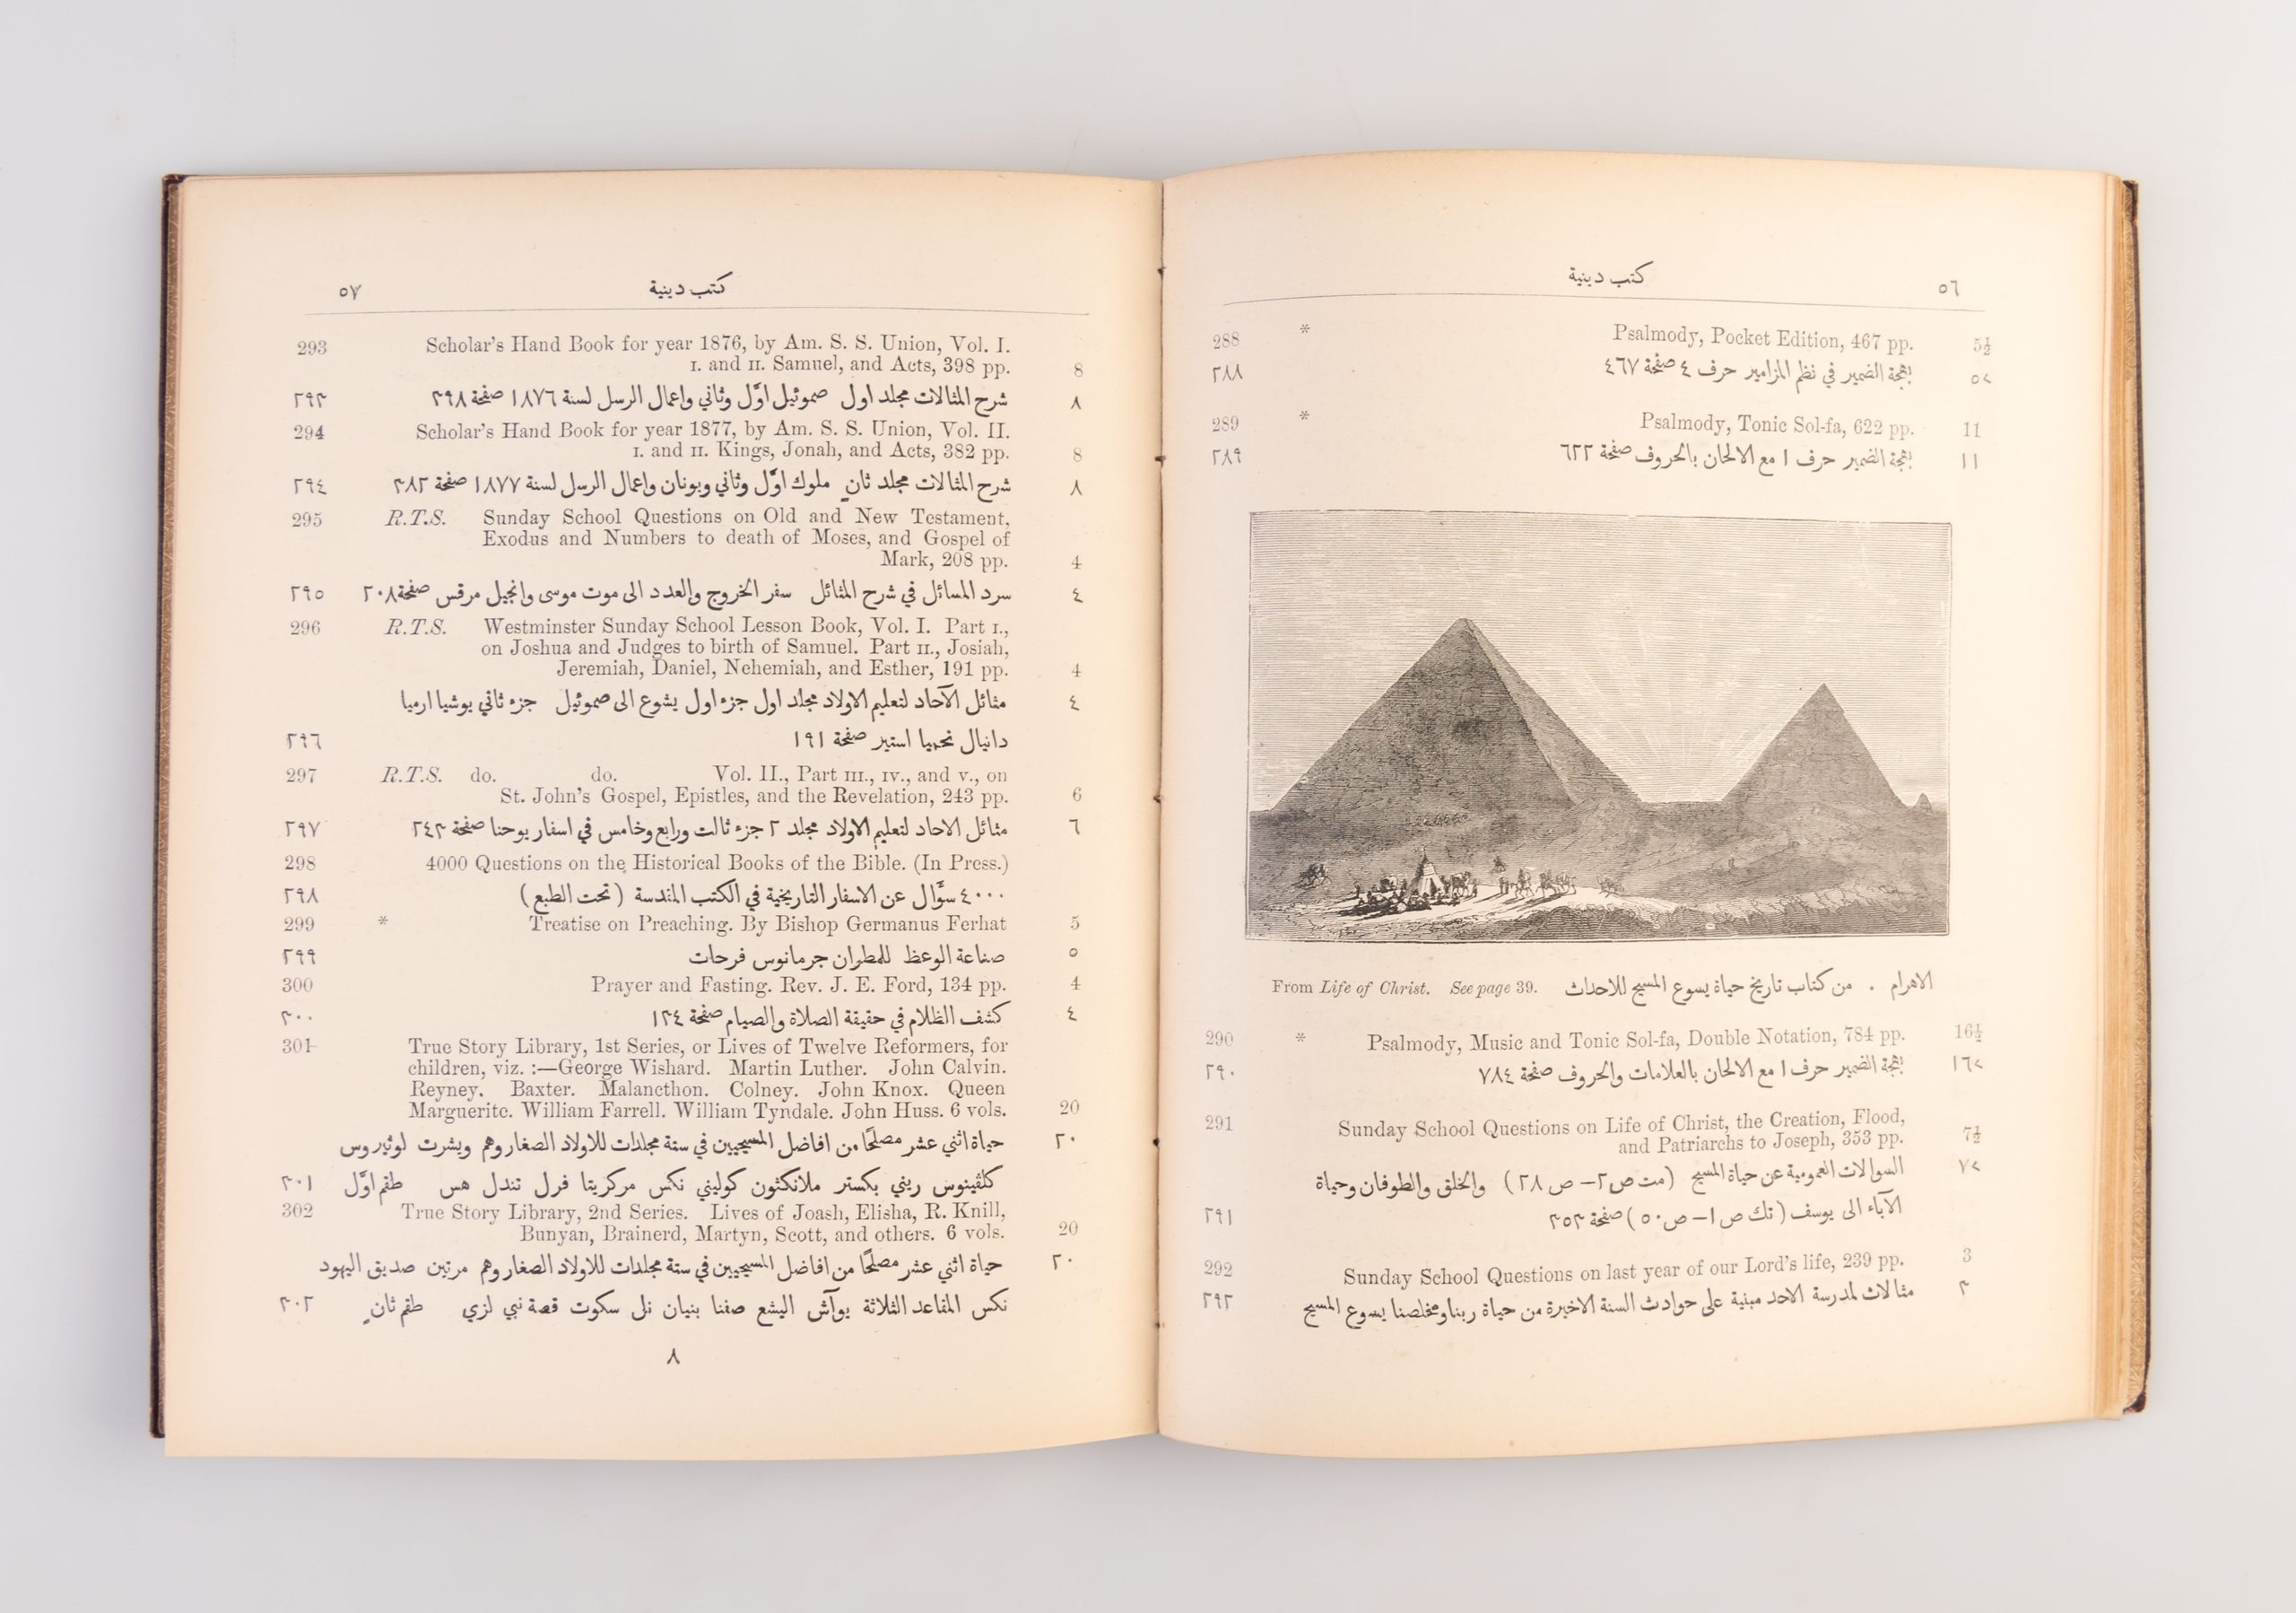 كتب دينية ٥٦
288 * Psalmody, Pocket Edition, 467 pp. 5½
٢٨٨ بهجة الضمير في نظم المزامير حرف ٤ صفحة ٤٦٧ ٥<
289 * Psalmody, Tonic Sol-fa, 622 pp. 11
٢٨٩ بهجة الضمير حرف ١ مع الالحان بالحروف صفحة ٦٢٢ ١١
From Life of Christ. See page 39. الاهرام . من كتاب تاريخ حياة يسوع المسيح للاحداث
290 * Psalmody, Music and Tonic Sol-fa, Double Notation, 784 pp. 16½
٢٩٠ بهجة الضمير حرف ١ مع الالحان بالعلامات والحروف صفحة ٧٨٤ ١٦<
291 Sunday School Questions on Life of Christ, the Creation, Flood,
and Patriarchs to Joseph, 353 pp. 7½
السوالات العمومية عن حياة المسيح (مت ص٢– ص ٢٨) والخلق والطوفان وحياة ٧<
٢٩١ الآباء الى يوسف (تك ص ١– ص ٥٠) صفحة ٣٥٣
292 Sunday School Questions on last year of our Lord's life, 239 pp. 3
٢٩٢ مثالات لمدرسة الاحد مبنية على حوادث السنة الاخيرة من حياة ربنا ومخلصنا يسوع المسيح ٣
كتب دينية ٥٧
293 Scholar's Hand Book for year 1876, by Am. S. S. Union, Vol. I.
I. and II. Samuel, and Acts, 398 pp. 8
٢٩٣ شرح المثالات مجلد اول صموئيل اوَّل وثاني واعمال الرسل لسنة ١٨٧٦ صفحة ٣٩٨ ٨
294 Scholar's Hand Book for year 1877, by Am. S. S. Union, Vol. II.
I. and II. Kings, Jonah, and Acts, 382 pp. 8
٢٩٤ شرح المثالات مجلد ثانٍ ملوك اوَّل وثاني ويونان واعمال الرسل لسنة ١٨٧٧ صفحة ٣٨٢ ٨
295 R.T.S. Sunday School Questions on Old and New Testament,
Exodus and Numbers to death of Moses, and Gospel of
Mark, 208 pp. 4
٢٩٥ سرد المسائل في شرح المثائل سفر الخروج والعدد الى موت موسى وانجيل مرقس صفحة ٢٠٨ ٤
296 R.T.S. Westminster Sunday School Lesson Book, Vol. I. Part I.,
on Joshua and Judges to birth of Samuel. Part II., Josiah,
Jeremiah, Daniel, Nehemiah, and Esther, 191 pp. 4
مثائل الآحاد لتعليم الاولاد مجلد اول جزء اول يشوع الى صموئيل جزء ثاني يوشيا ارميا ٤
٢٩٦ دانيال نحميا استير صفحة ١٩١
297 R.T.S. do. do. Vol. II., Part III., IV., and V., on
St. John's Gospel, Epistles, and the Revelation, 243 pp. 6
٢٩٧ مثائل الاحاد لتعليم الاولاد مجلد ٢ جزء ثالث ورابع وخامس في اسفار يوحنا صفحة ٢٤٣ ٦
298 4000 Questions on the Historical Books of the Bible. (In Press.)
٢٩٨ ٤٠٠٠ سؤَال عن الاسفار التاريخية في الكتب المقدسة (تحت الطبع)
299 * Treatise on Preaching. By Bishop Germanus Ferhat 5
٢٩٩ صناعة الوعظ للمطران جرمانوس فرحات ٥
300 Prayer and Fasting. Rev. J. E. Ford, 134 pp. 4
٣٠٠ كشف الظلام في حقيقة الصلاة والصيام صفحة ١٣٤ ٤
301 True Story Library, 1st Series, or Lives of Twelve Reformers, for
children, viz. :—George Wishard. Martin Luther. John Calvin.
Reyney. Baxter. Malancthon. Colney. John Knox. Queen
Marguerite. William Farrell. William Tyndale. John Huss. 6 vols. 20
حياة اثني عشر مصلحًا من افاضل المسيحيين في ستة مجلدات للاولاد الصغار وهم ويشرت لوثيروس ٢٠
٣٠١ كلڤينوس ريني بكستر ملانكثون كوليني نكس مركريتا فرل تندل هس طقم اوَّل
302 True Story Library, 2nd Series. Lives of Joash, Elisha, R. Knill,
Bunyan, Brainerd, Martyn, Scott, and others. 6 vols. 20
حياة اثني عشر مصلحًا من افاضل المسيحيين في ستة مجلدات للاولاد الصغار وهم مرتين صديق اليهود ٢٠
٣٠٢ نكس المقاعد الثلاثة يوآش اليشع صفنا بنيان نل سكوت قصة نبي لزي طقم ثانٍ
٨